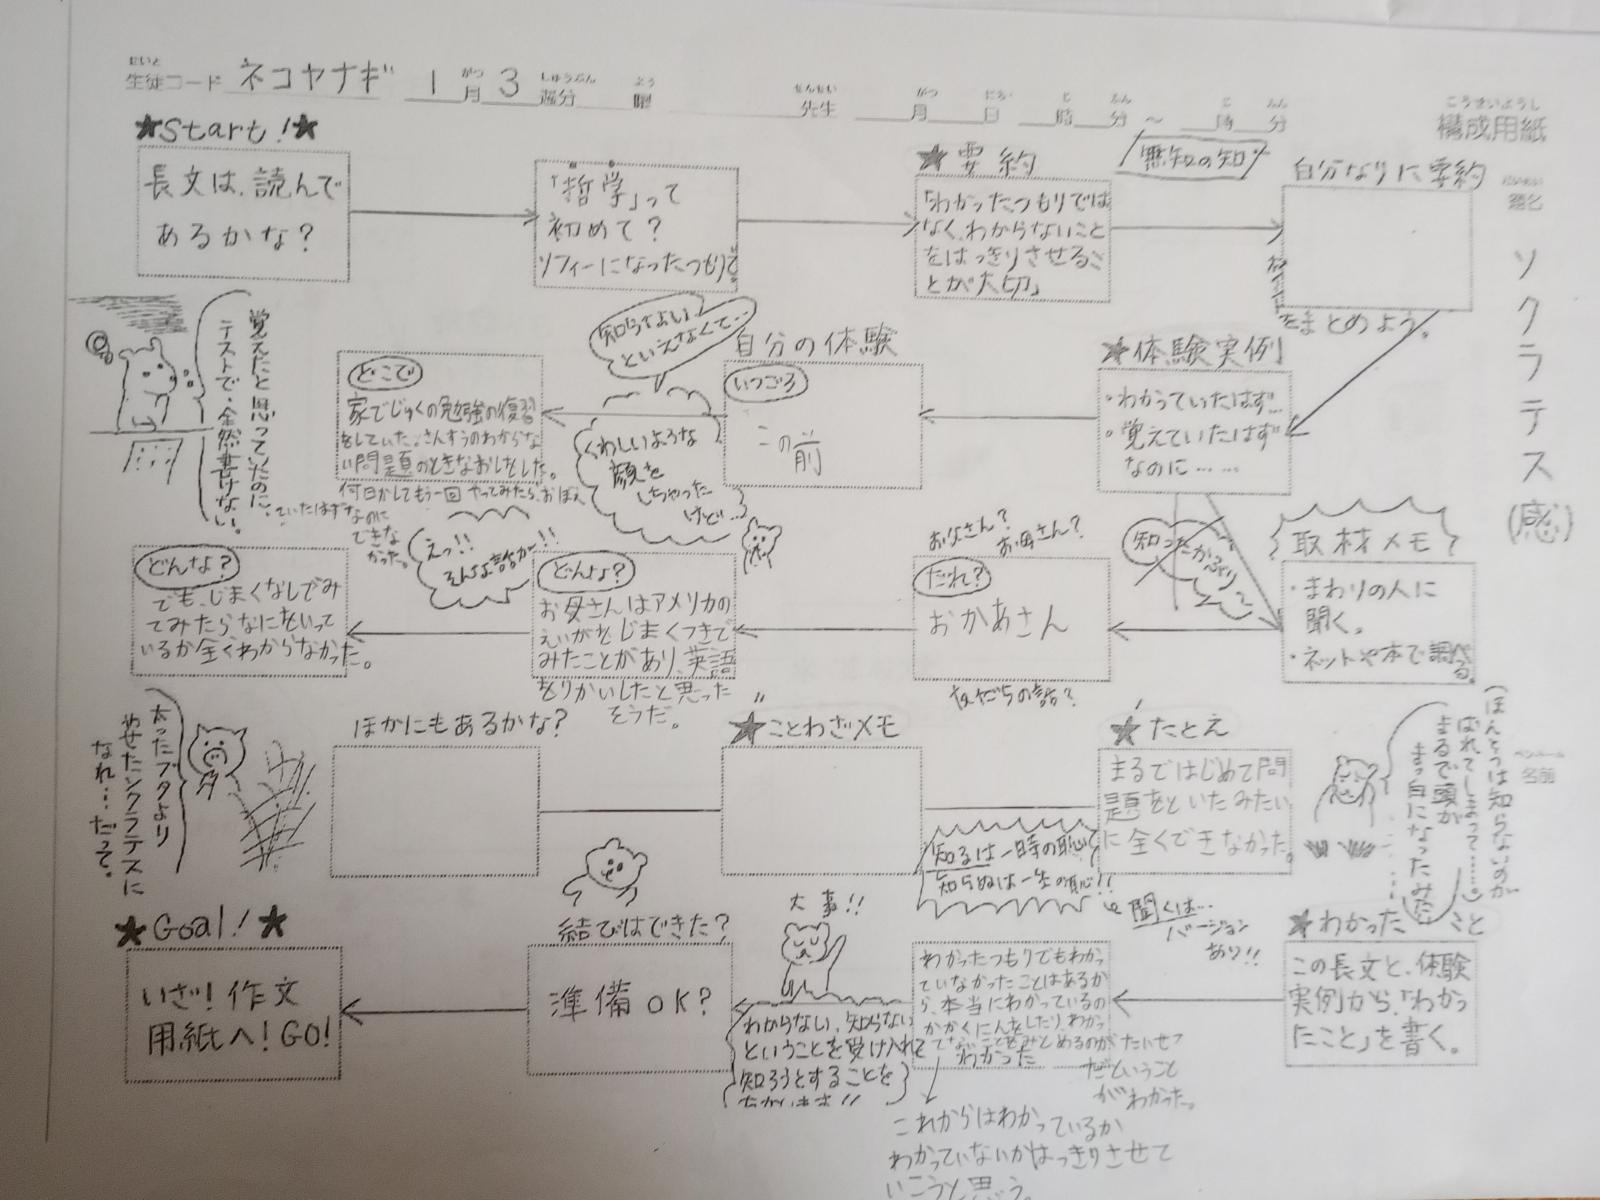 せいと
生徒コード ネコヤナギ 1月 3週分 曜
がつ しゅうぶん よう
せんせい がつ にち じ ふん じ ふん
先生 月 日 時 分 ～ 時 分
こうせいようし
構成用紙
だいめい
題名
ソクラテス(感)
★Start!★
長文は、読んで
あるかな?
「哲学」って
初めて?
ソフィーになったつもりで。
★要約
無知の知
「わかったつもりでは
なく、わからないこと
をはっきりさせるこ
とが大切」
自分なりに要約
をまとめよう。
★体験実例
・わかっていたはず…
・覚えていたはず
なのに……
自分の体験
いつごろ
この前
知らないよ
といえなくて…
くわしいような
顔を
しちゃった
けど…
どこで
家でじゅくの勉強の復習
をしていた。さんすうのわからな
い問題のときなおしをした。
何日かしてもう一回やってみたら、おぼえ
ていたはずなのに
できな
かった。
覚えたと思っていたのに、
テストで、全然書けない。
取材メモ
・まわりの人に
聞く。
・ネットや本で調べる。
知ったかぶり〜
お父さん?
お母さん?
だれ?
おかあさん
友だちの話?
えっ!!
そんな話が!!
どんな?
お母さんはアメリカの
えいがをじまくつきで
みたことがあり、英語
をりかいしたと思った
そうだ。
どんな?
でも、じまくなしでみ
てみたらなにをいって
いるか全くわからなかった。
太ったブタより
やせたソクラテスに
なれ…だって。
ほかにもあるかな?
★ことわざメモ
★たとえ
まるではじめて問
題をといたみたい
に全くできなかった。
知るは一時の恥
知らぬは一生の恥!!
聞くは…
バージョン
あり!!
(ほんとうは知らないのが
ばれてしまって……。)
まるで頭が
まっ白になったみたい
ペンネーム
名前
★わかったこと
この長文と、体験
実例から、「わかっ
たこと」を書く。
わかったつもりでもわかっ
ていなかったことはあるか
ら、本当にわかっているの
かかくにんをしたり、わかっ
てないことをみとめるのがたいせつ
だということ
がわかった。
わかった
これからはわかっているか
わかっていないかはっきりさせて
いこうと思う。
大事!!
わからない、知らない
ということを受け入れて
知ろうとすることを
結びはできた?
準備OK?
★Goal!★
いざ!作文
用紙へ!GO!